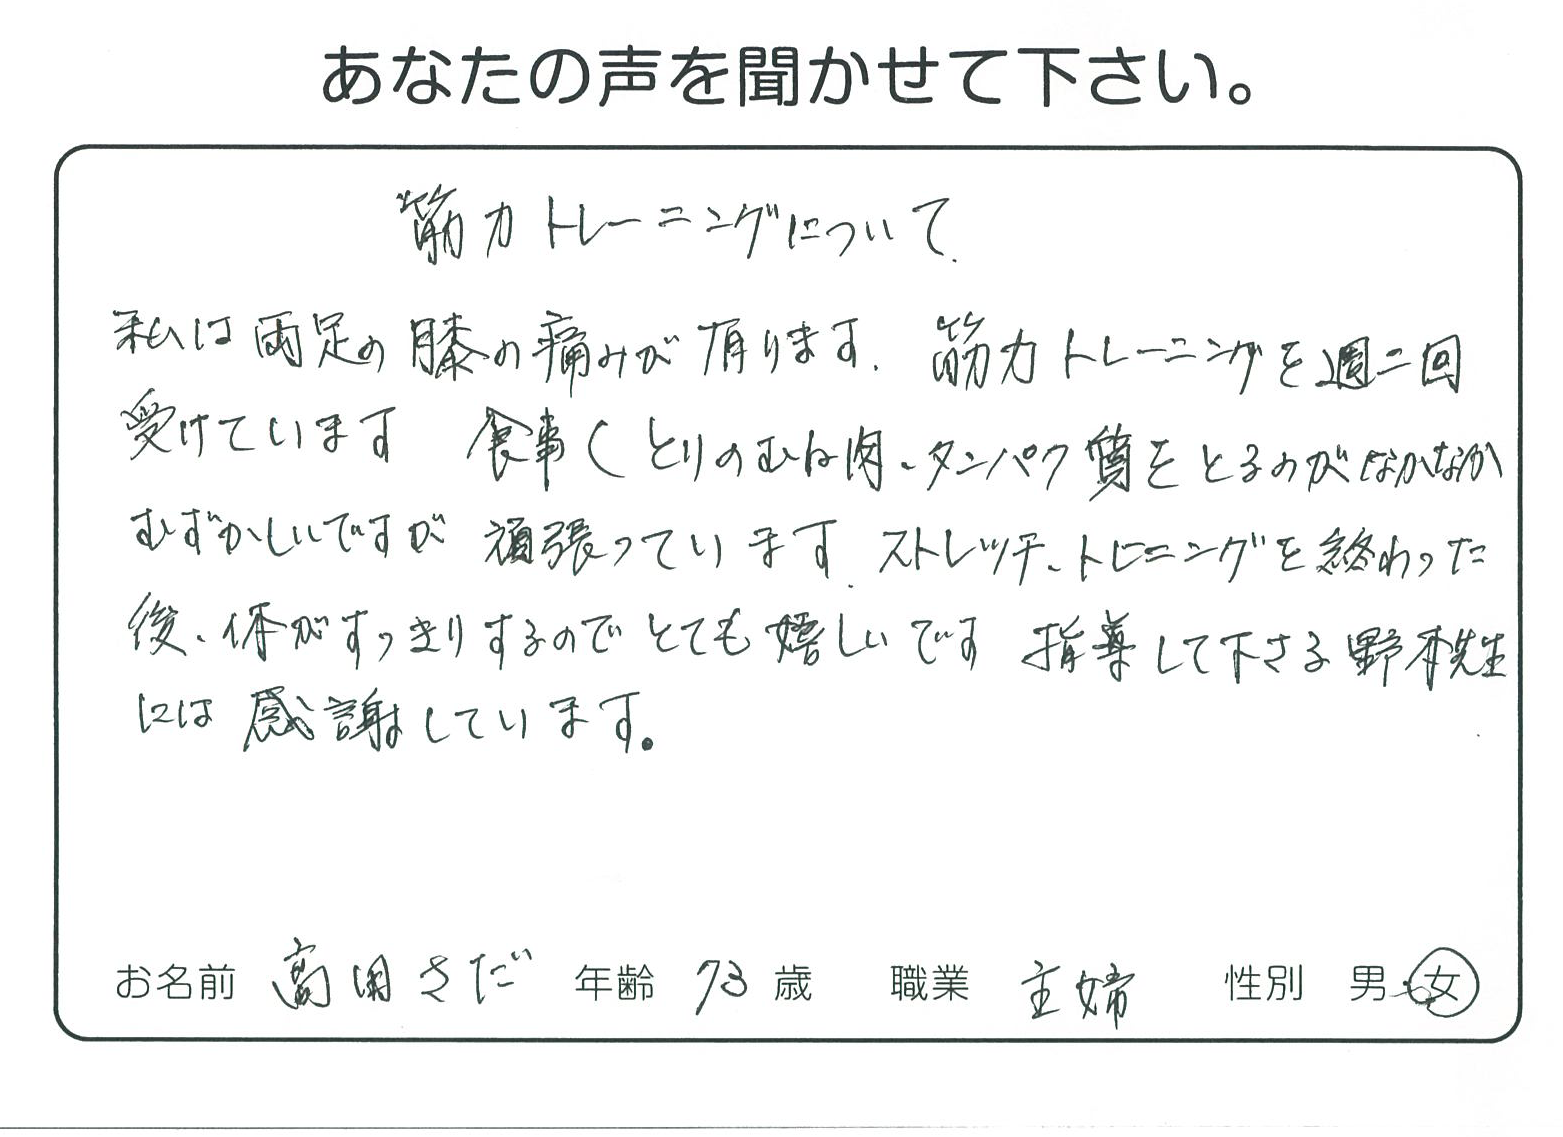 あなたの声を聞かせて下さい。
筋力トレーニングについて.
私は両足の膝の痛みが有ります. 筋力トレーニングを週二回
受けています 食事く とりのむね肉、タンパク質をとるのがなかなか
むずかしいですが 頑張っています. ストレッチ、トレーニングを終わった
後、体がすっきりするのでとても嬉しいです 指導して下さる野本先生
には感謝しています。
お名前 高田さだ 年齢 73 歳 職業 主婦 性別 男・女